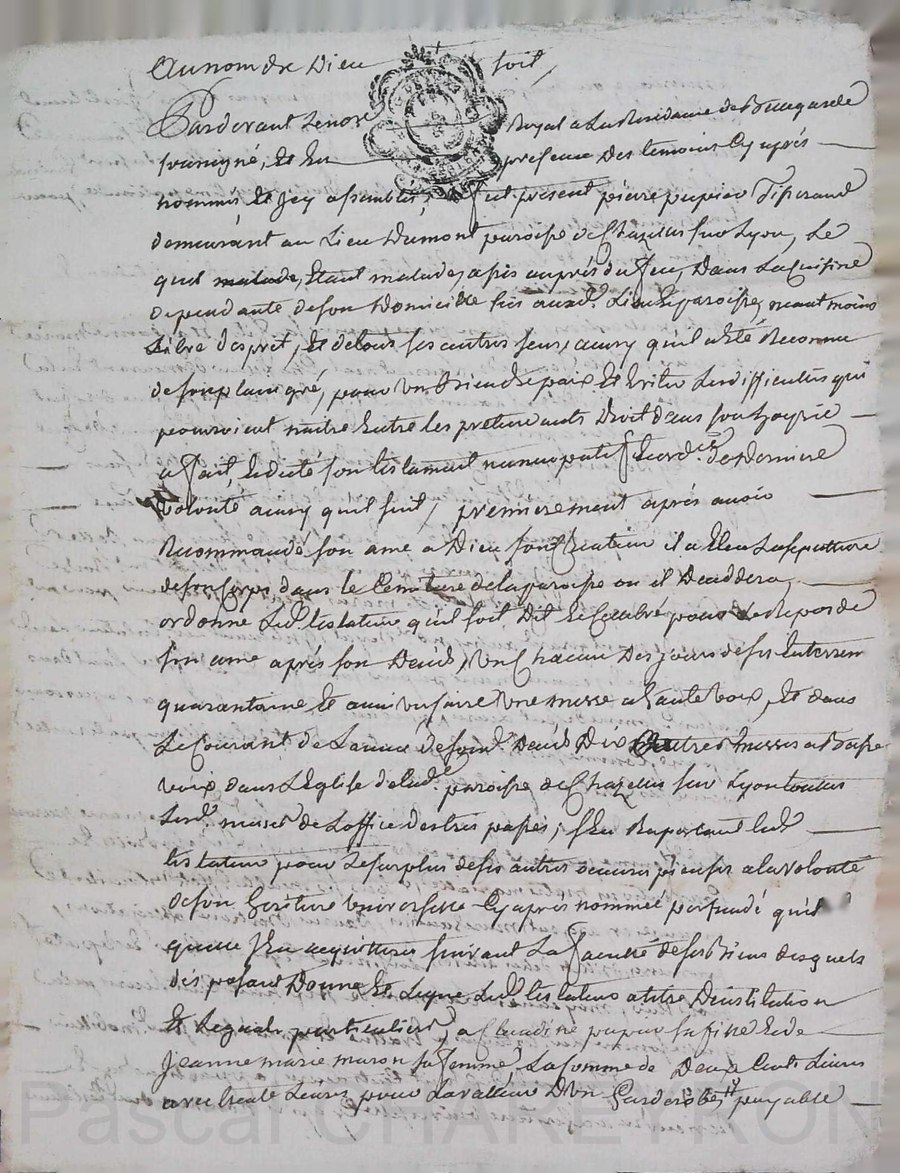 Au nom de Dieu soit
Pardevant Lenore Royal a La Residance de Bueegarde
soussigné, Et En presence Des temoins Cy aprés
nommés Et Icy assemblés, fut présent pierre pupier Tisserand
demeurant au Lieu Dumont paroisse de Chazelles sur Lyon, Le
quel malade, Etant malade, assis auprés du feu, Dans La Cuisine
dependante de son Domicille sis aud. Lieu Et paroisse, neant moins
Libre desprit, Et de tous ses autres sens, ainsy qu'il a Eté Reconnu
de son plain gré, pour Entretenir La paix Et Eviter Les difficultés qui
pourroient naitre Entre les pretendants Droit dans son hoyrie
a fait, Et dicté son testament nuncupatif Et ord.re de derniere
volonté ainsy quil suit, premierement aprés avoir
Recommandé son ame a Dieu son Createur il a Eleu La sepulture
de son Corps dans le Cemetiere de la paroisse ou il Decedera,
ordonne Led. testateur qu'il soit Dit Et Celebré pour Le Repos de
son ame aprés son Deceds, En Chacun Des jours de ses Enterrem
quarantaine Et anniversaire Une messe a haute voix, Et dans
Le Courant de Lannée de sond. Deceds Dix autres messes a Basse
voix dans L'Eglise de lad. paroisse de Chazelles sur Lyon toutes
Lesd. messes de L'office des tres passés, s'En Raportant led.
testateur pour Le surplus de ses autres oeuvres pieuses a la volonté
de son heritiere universelle Cy aprés nommée persuadé qu'il
quelle s'En acquittera suivant La faculté de ses Biens desquels
disposant Donne Et Legue Led. testateur a titre D'institution
Et Legat particuliers, a Claudine pupier sa fille Et de
Jeanne marie maron sa femme, La somme de Deux Cents Livres
avec trente Livres pour La valeur D'Un Garderobe, payable
Pascal CHAREYRON